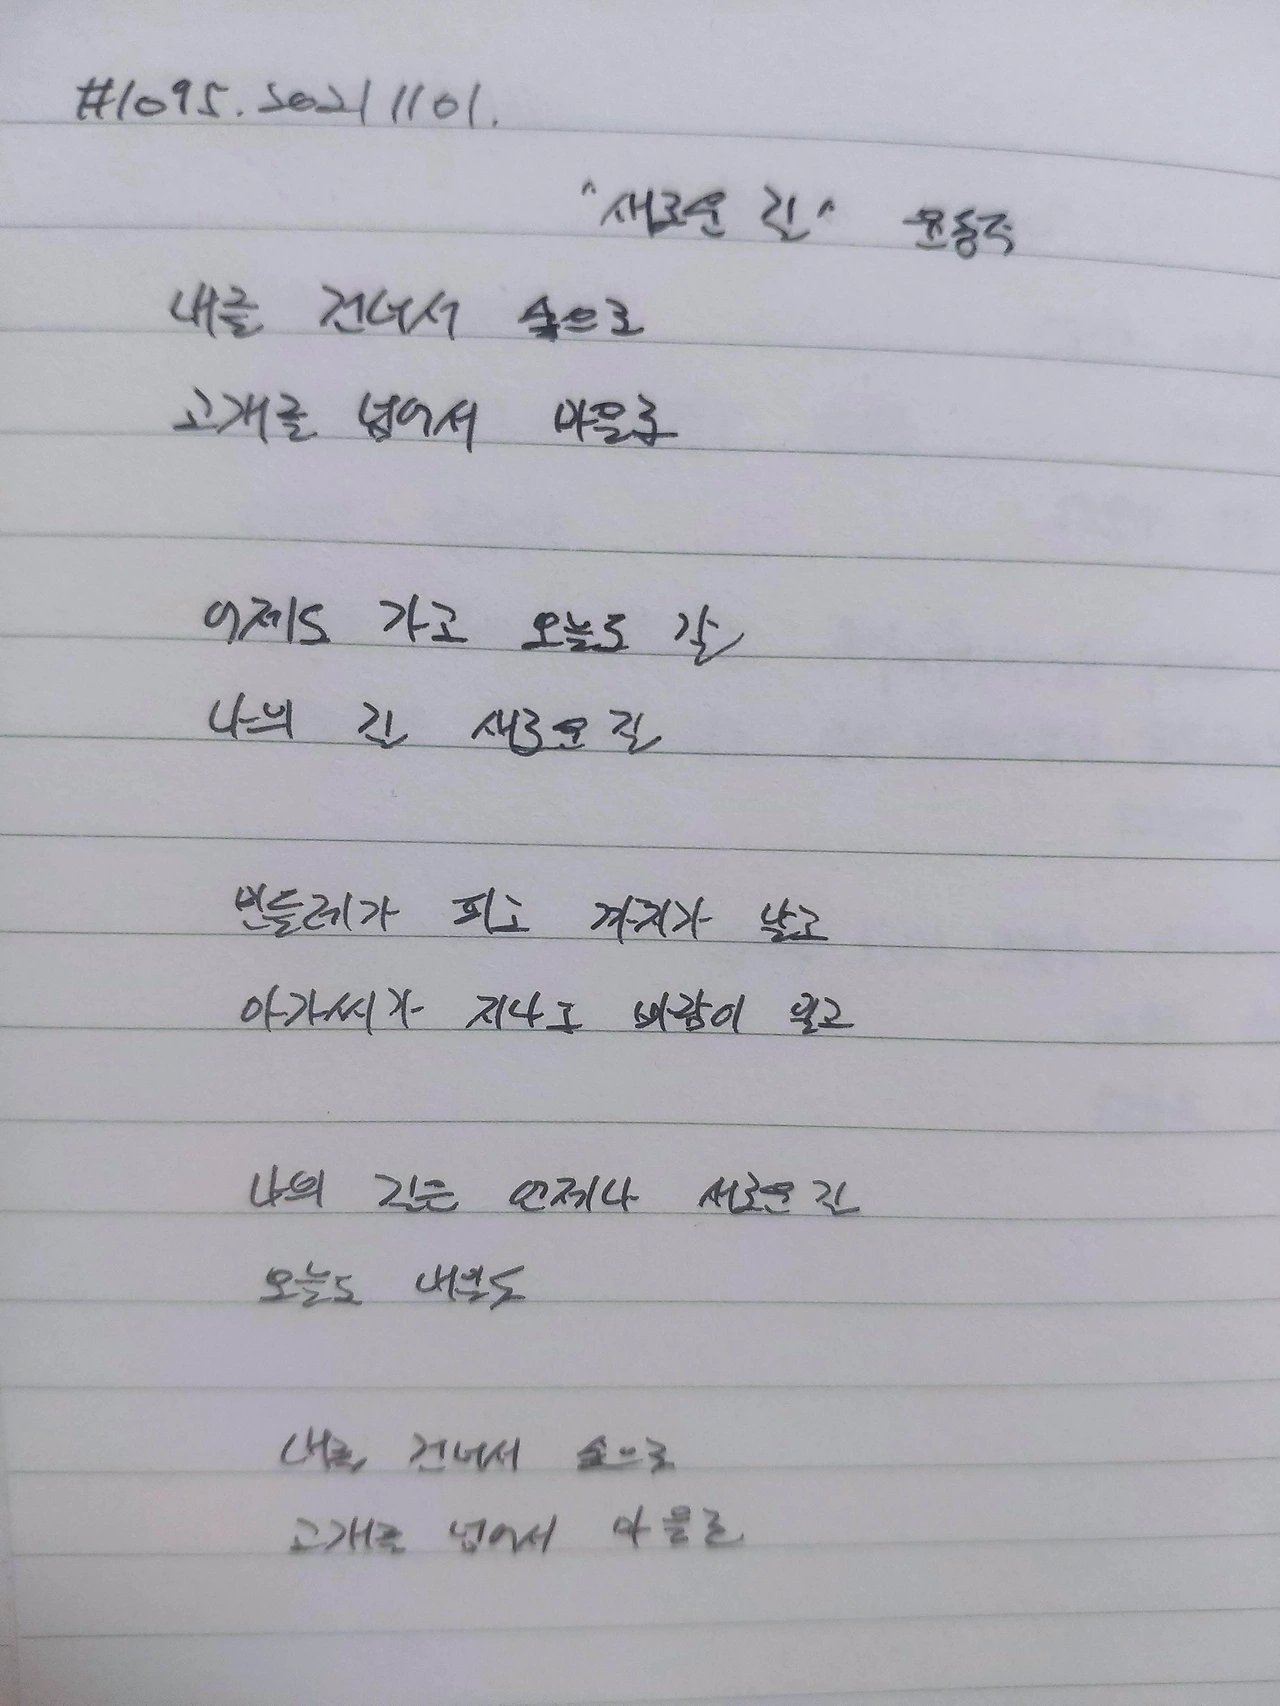 #1095. 20211101.
"새로운 길" 윤동주
내를 건너서 숲으로
고개를 넘어서 마을로
어제도 가고 오늘도 갈
나의 길 새로운 길
민들레가 피고 까치가 날고
아가씨가 지나고 바람이 일고
나의 길은 언제나 새로운 길
오늘도 내일도
내를 건너서 숲으로
고개를 넘어서 마을로